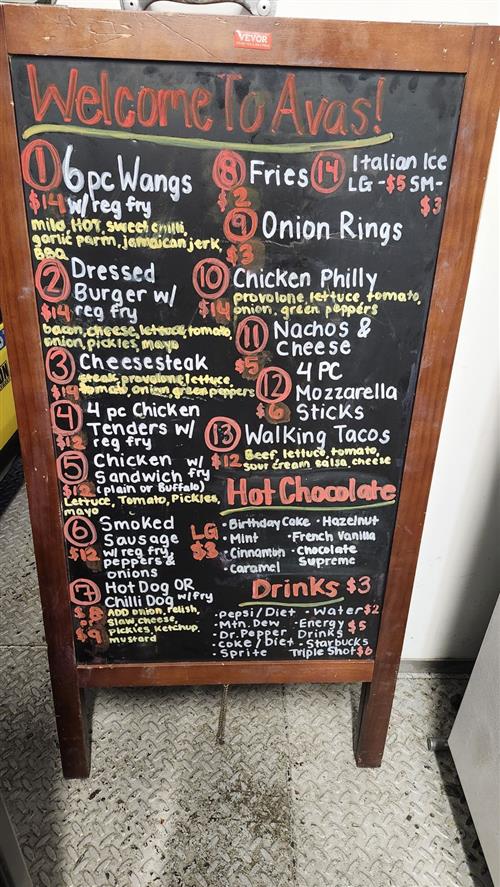 VEVOR
Welcome To Avas!
1 6pc Wangs
$14 w/ reg fry
mild, HOT, sweet chilli,
garlic parm, jamaican jerk,
BBQ
2 Dressed
Burger w/
$14 reg fry
bacon, cheese, lettuce, tomato
onion, pickles, mayo
3 Cheesesteak
$14 steak, provolone, lettuce,
tomato, onion, green peppers
4 4 pc Chicken
Tenders w/
$12 reg fry
5 Chicken w/
Sandwich fry
$12 (plain or Buffalo)
Lettuce, Tomato, Pickles,
mayo
6 Smoked
Sausage
$12 w/ reg fry,
peppers &
onions
7 Hot Dog OR
Chilli Dog w/fry
$8 ADD onion, relish,
& slaw, cheese,
$9 pickles, ketchup,
mustard
8 Fries
$2
9 Onion Rings
$3
10 Chicken Philly
$14 provolone, lettuce, tomato,
onion, green peppers
11 Nachos &
Cheese
$5
12 4 PC
Mozzarella
$6 Sticks
13 Walking Tacos
$12 Beef, lettuce, tomato,
sour cream, salsa, cheese
14 Italian Ice
LG -$5 SM-
$3
Hot Chocolate
LG
$3
·Birthday Cake ·Hazelnut
·Mint ·French Vanilla
·Cinnamon ·Chocolate
·Caramel Supreme
Drinks $3
·pepsi/Diet ·Water $2
·Mtn. Dew ·Energy $5
·Dr. Pepper Drinks
·Coke/Diet ·Starbucks
·Sprite Triple Shot $6